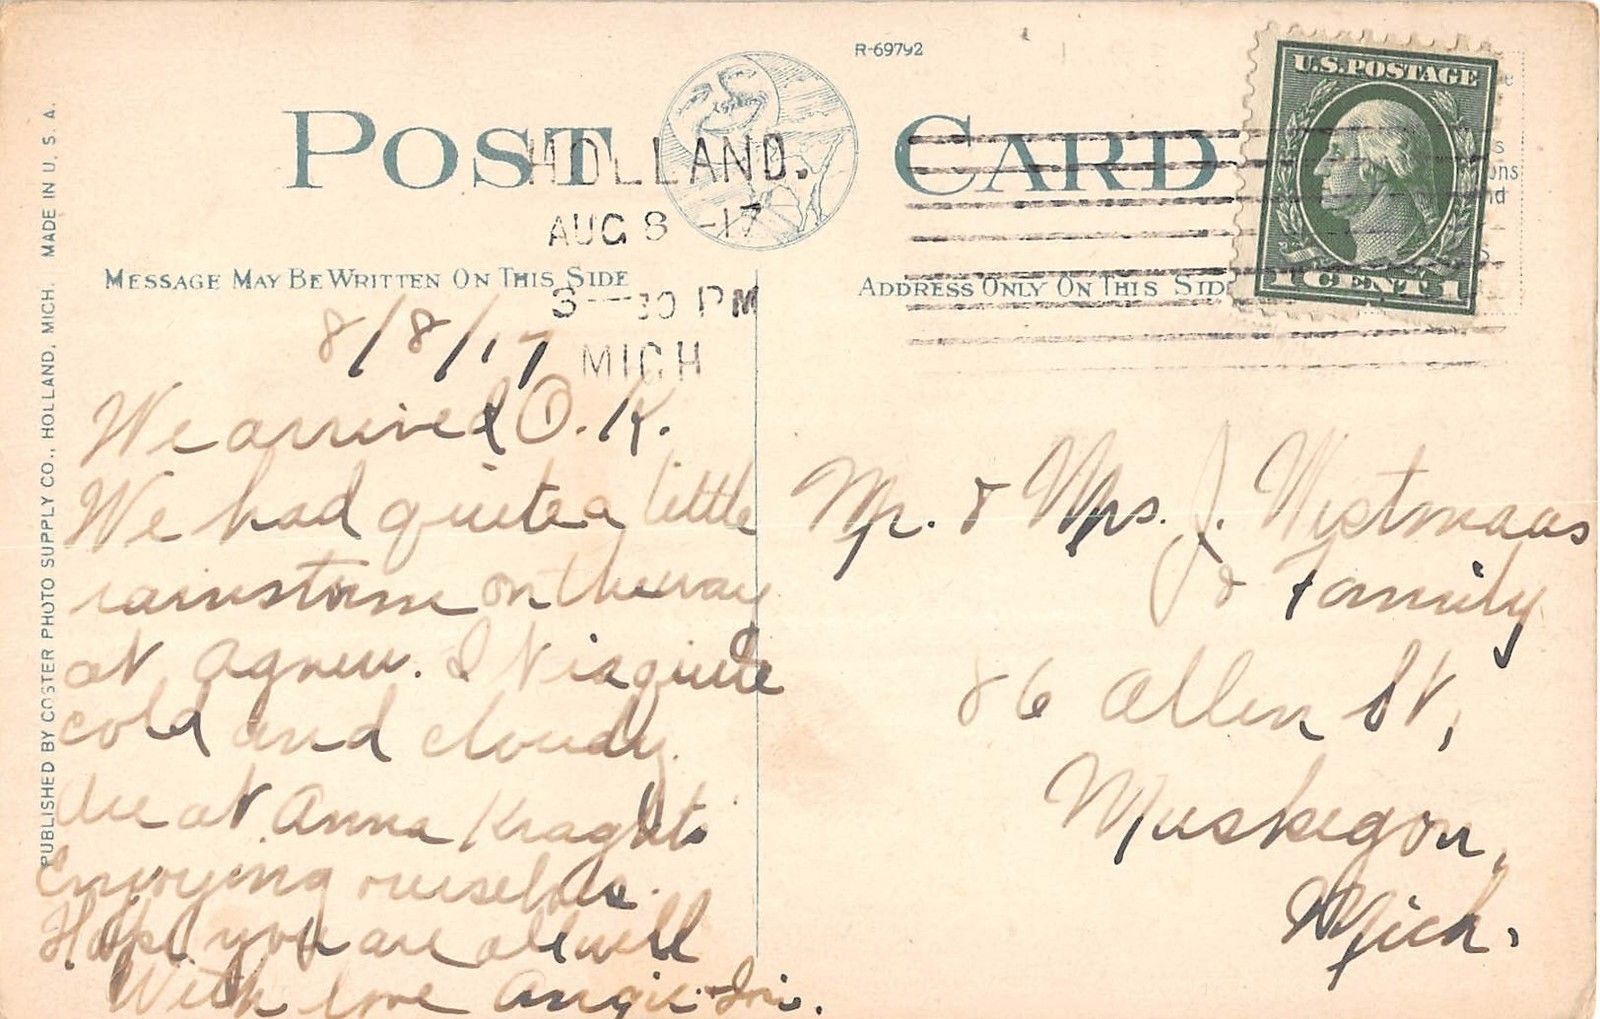 R-69792
POST CARD
U.S. POSTAGE
1 CENT 1
HOLLAND.
AUG 8 -17
3 -30 PM
MICH
MESSAGE MAY BE WRITTEN ON THIS SIDE
ADDRESS ONLY ON THIS SID
PUBLISHED BY COSTER PHOTO SUPPLY CO., HOLLAND, MICH. MADE IN U. S. A.
8/8/17
We arrived O.K.
We had quite a little
rainstorm on the way
at Agnew. It is quite
cold and cloudy.
Are at Anna
Enjoying ourselves.
Hope you are all well
With love Angie
Mr. & Mrs. J. Westmaas
& Family
86 Allen St,
Muskegon,
Mich.